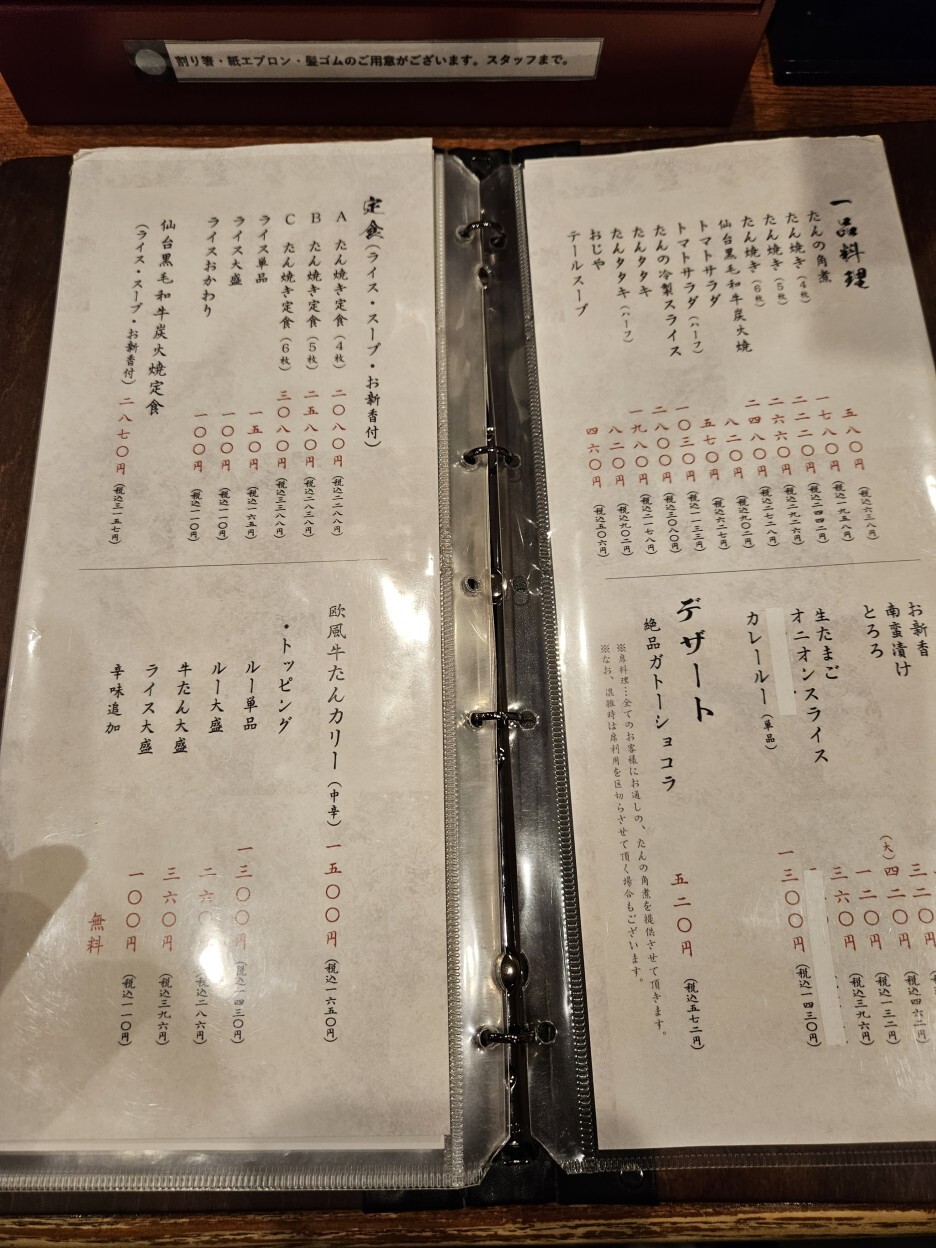 割り箸・紙エプロン・髪ゴムのご用意がございます。スタッフまで。
一品料理
たんの角煮 五八〇円 (税込六三八円)
たん焼き(4枚) 一七八〇円 (税込一九五八円)
たん焼き(5枚) 二二二〇円 (税込二四四二円)
たん焼き(6枚) 二六六〇円 (税込二九二六円)
仙台黒毛和牛炭火焼 二四八〇円 (税込二七二八円)
トマトサラダ 八二〇円 (税込九〇二円)
トマトサラダ(ハーフ) 五七〇円 (税込六二七円)
たんの冷製スライス 一〇三〇円 (税込一一三三円)
たんタタキ 二八〇〇円 (税込三〇八〇円)
たんタタキ(ハーフ) 一九八〇円 (税込二一七八円)
おじや 八二〇円 (税込九〇二円)
テールスープ 四六〇円 (税込五〇六円)
お新香
南蛮漬け 三二〇円
とろろ (大)四二〇円 (税込四六二円)
生たまご 一二〇円 (税込一三二円)
オニオンスライス 三六〇円 (税込三九六円)
カレールー(単品) 一三〇〇円 (税込一四三〇円)
デザート
絶品ガトーショコラ 五二〇円 (税込五七二円)
※席料理…全てのお客様にお通しの、たんの角煮を提供させて頂きます。
※なお、混雑時は席利用を区切らさせて頂く場合もございます。
定食(ライス・スープ・お新香付)
A たん焼き定食(4枚) 二〇八〇円 (税込二二八八円)
B たん焼き定食(5枚) 二五八〇円 (税込二八三八円)
C たん焼き定食(6枚) 三〇八〇円 (税込三三八八円)
ライス単品 一五〇円 (税込一六五円)
ライス大盛 一〇〇円 (税込一一〇円)
ライスおかわり 一〇〇円 (税込一一〇円)
仙台黒毛和牛炭火焼定食
(ライス・スープ・お新香付) 二八七〇円 (税込三一五七円)
欧風牛たんカリー(中辛) 一五〇〇円 (税込一六五〇円)
・トッピング
ルー単品 一三〇〇円 (税込一四三〇円)
ルー大盛 二六〇円 (税込二八六円)
牛たん大盛 三六〇円 (税込三九六円)
ライス大盛 一〇〇円 (税込一一〇円)
辛味追加 無料